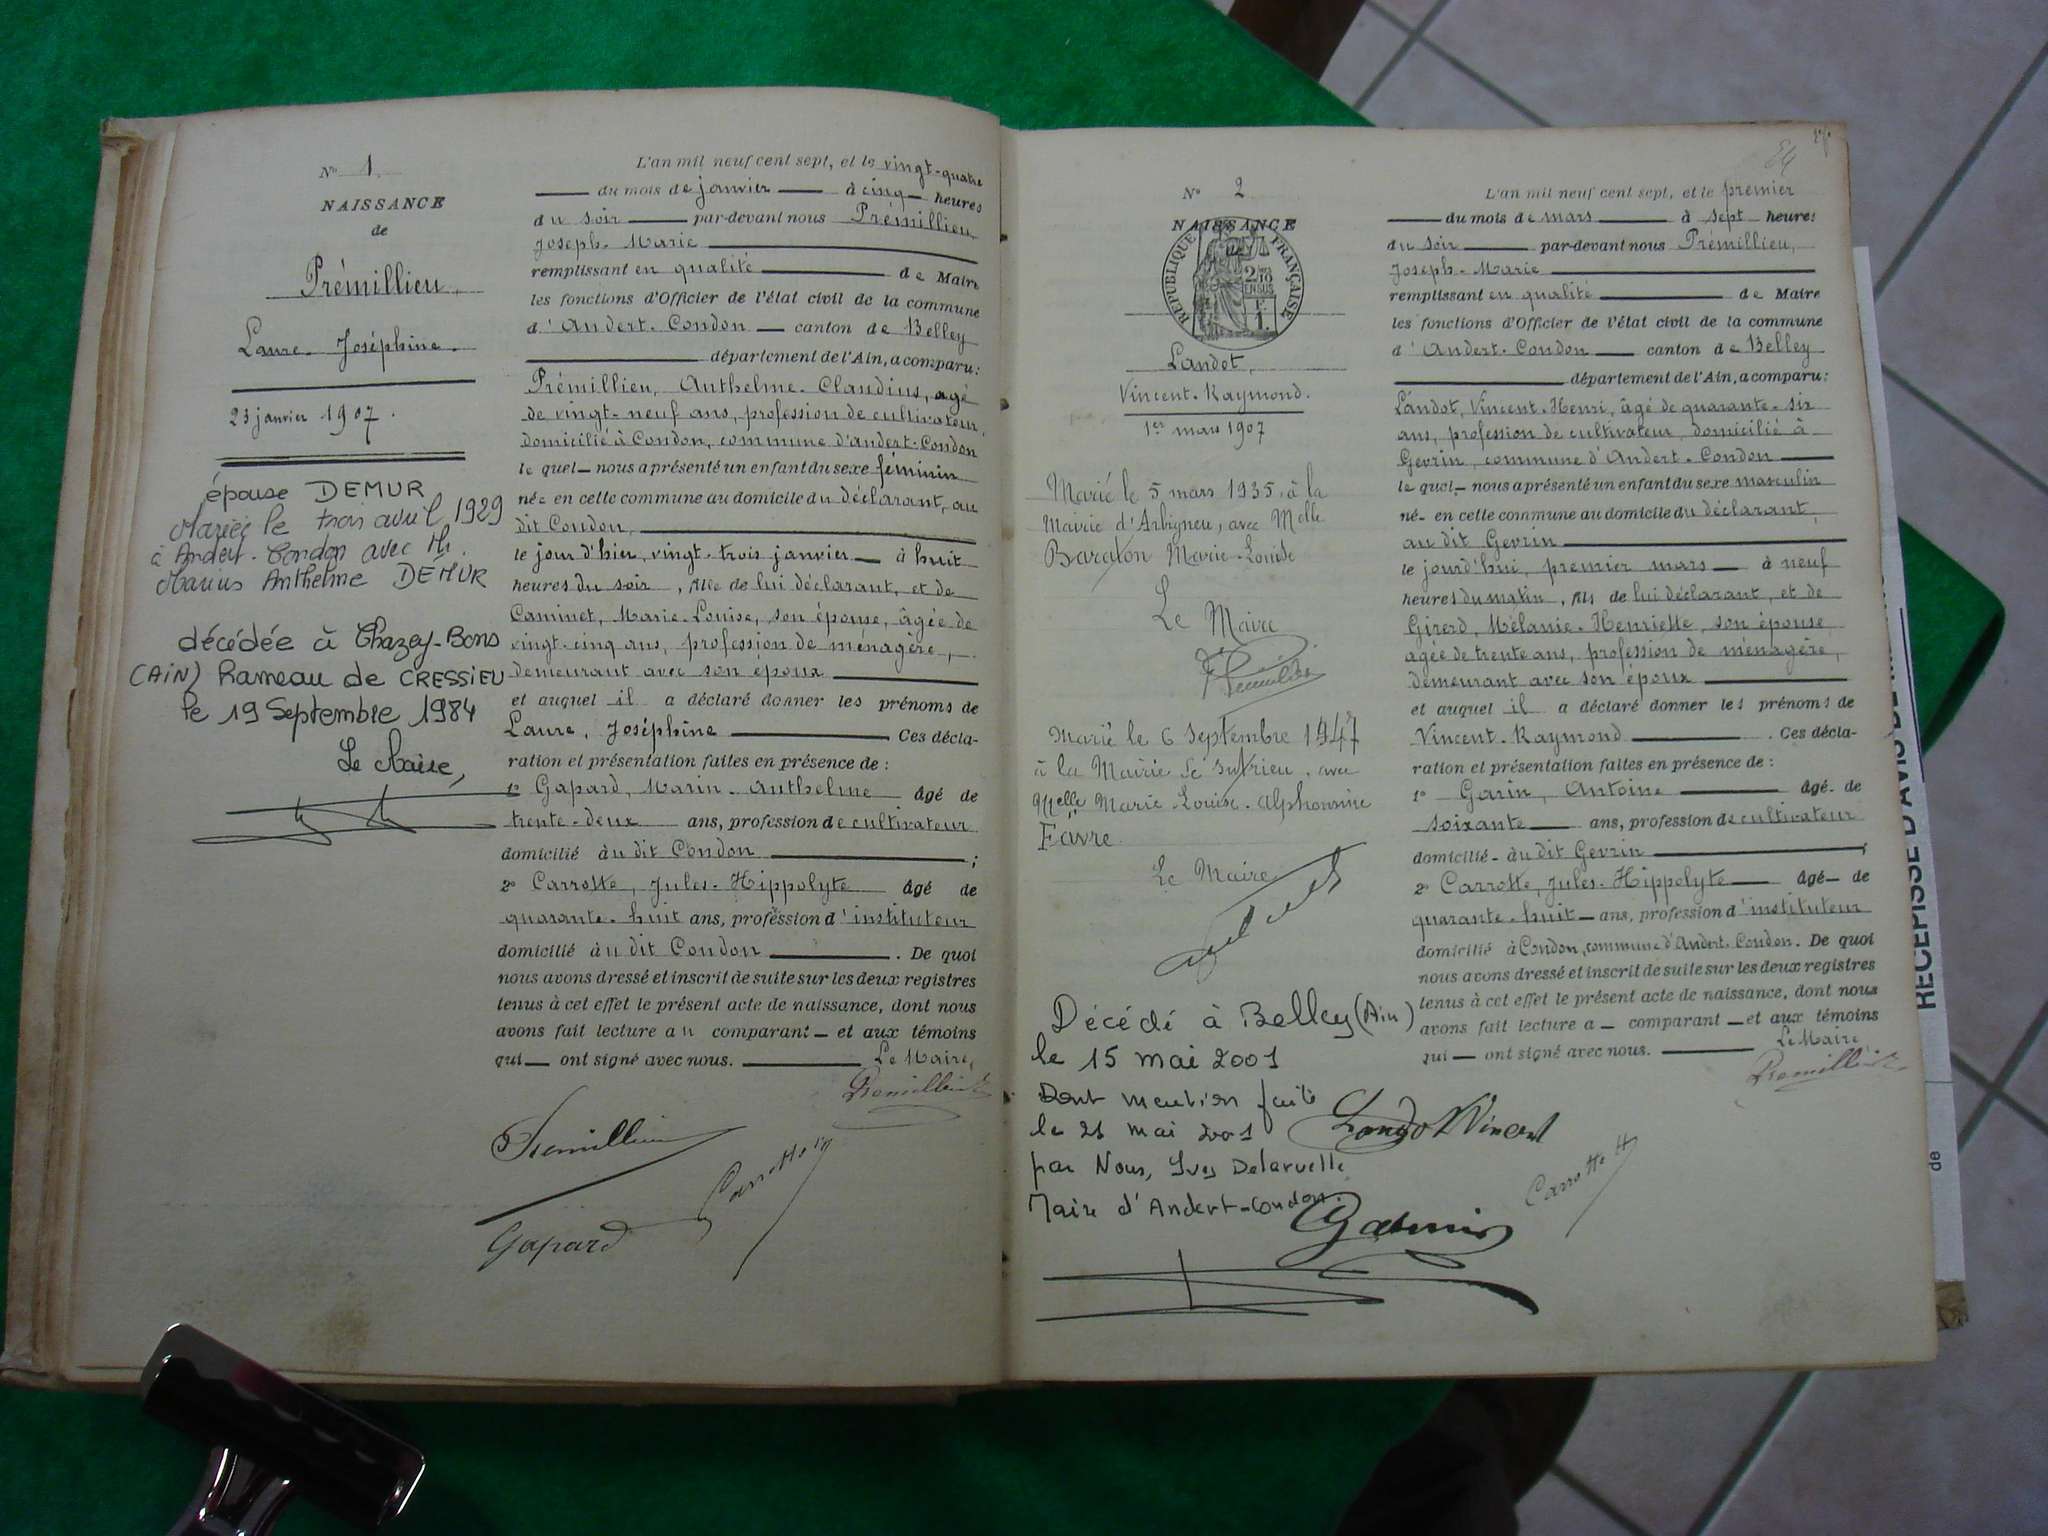 N° 1.
NAISSANCE
de
Prémillieu,
Laure-Joséphine.
23 janvier 1907.
épouse DEMUR
Mariée le trois avril 1929
à Andert-Condon avec Mr.
Marius Anthelme DEMUR
décédée à Chazey-Bons
(AiN) Hameau de CRESSIEU
le 19 Septembre 1984
Le Maire,
L'an mil neuf cent sept, et le vingt-quatre
du mois de janvier à cinq heures
du soir par-devant nous Prémillieu,
Joseph-Marie
remplissant en qualité de Maire
les fonctions d'Officier de l'état civil de la commune
d'Andert-Condon canton de Belley
département de l'Ain, a comparu:
Prémillieu, Anthelme-Claudius, agé
de vingt-neuf ans, profession de cultivateur,
domicilié à Condon, commune d'Andert-Condon
le quel nous a présenté un enfant du sexe féminin
née en cette commune au domicile du déclarant, au
dit Condon,
le jour d'hier, vingt-trois janvier à huit
heures du soir, fille de lui déclarant, et de
Caminet, Marie-Louise, son épouse, âgée de
vingt-cinq ans, profession de ménagère,
demeurant avec son époux
et auquel il a déclaré donner les prénoms de
Laure, Joséphine Ces décla-
ration et présentation faites en présence de :
1° Gapard, Marin-Anthelme âgé de
trente-deux ans, profession de cultivateur
domicilié au dit Condon ;
2° Carrotte, Jules-Hippolyte âgé de
quarante-huit ans, profession d'instituteur
domicilié au dit Condon . De quoi
nous avons dressé et inscrit de suite sur les deux registres
tenus à cet effet le présent acte de naissance, dont nous
avons fait lecture au comparant et aux témoins
qui ont signé avec nous. Le Maire,
Prémillieu
Prémillieu
Carrotte H
Gapard
N° 2
NAISSANCE
de
RÉPUBLIQUE FRANÇAISE
2/10 EN SUS
F. 1.
Landot,
Vincent-Raymond.
1er mars 1907
Marié le 5 mars 1935, à la
Mairie d'Arbignieu, avec Melle
Baraton Marie-Louise
Le Maire
Marié le 6 Septembre 1947
à la Mairie de Sutrieu, avec
Melle Marie-Louise-Alphonsine
Favre.
Le Maire
Décédé à Belley (Ain)
le 15 mai 2001
Dont mention faite
le 21 mai 2001
par Nous, Yves Delaruelle
Maire d'Andert-Condon.
L'an mil neuf cent sept, et le premier
du mois de mars à sept heures
du soir par-devant nous Prémillieu,
Joseph-Marie
remplissant en qualité de Maire
les fonctions d'Officier de l'état civil de la commune
d'Andert-Condon canton de Belley
département de l'Ain, a comparu:
Landot, Vincent-Henri, âgé de quarante-six
ans, profession de cultivateur, domicilié à
Gevrin, commune d'Andert-Condon
le quel nous a présenté un enfant du sexe masculin
né en cette commune au domicile du déclarant,
au dit Gevrin
le jourd'hui, premier mars à neuf
heures du matin, fils de lui déclarant, et de
Girerd, Mélanie-Henriette, son épouse,
agée de trente ans, profession de ménagère,
demeurant avec son époux
et auquel il a déclaré donner les prénoms de
Vincent-Raymond . Ces décla-
ration et présentation faites en présence de :
1° Garin, Antoine âgé de
soixante ans, profession de cultivateur
domicilié au dit Gevrin ;
2° Carrotte, Jules-Hippolyte âgé de
quarante-huit ans, profession d'instituteur
domicilié à Condon, commune d'Andert-Condon. De quoi
nous avons dressé et inscrit de suite sur les deux registres
tenus à cet effet le présent acte de naissance, dont nous
avons fait lecture a comparant et aux témoins
qui ont signé avec nous. Le Maire
Prémillieu
Landot Vincent
Carrotte H
Garin
de